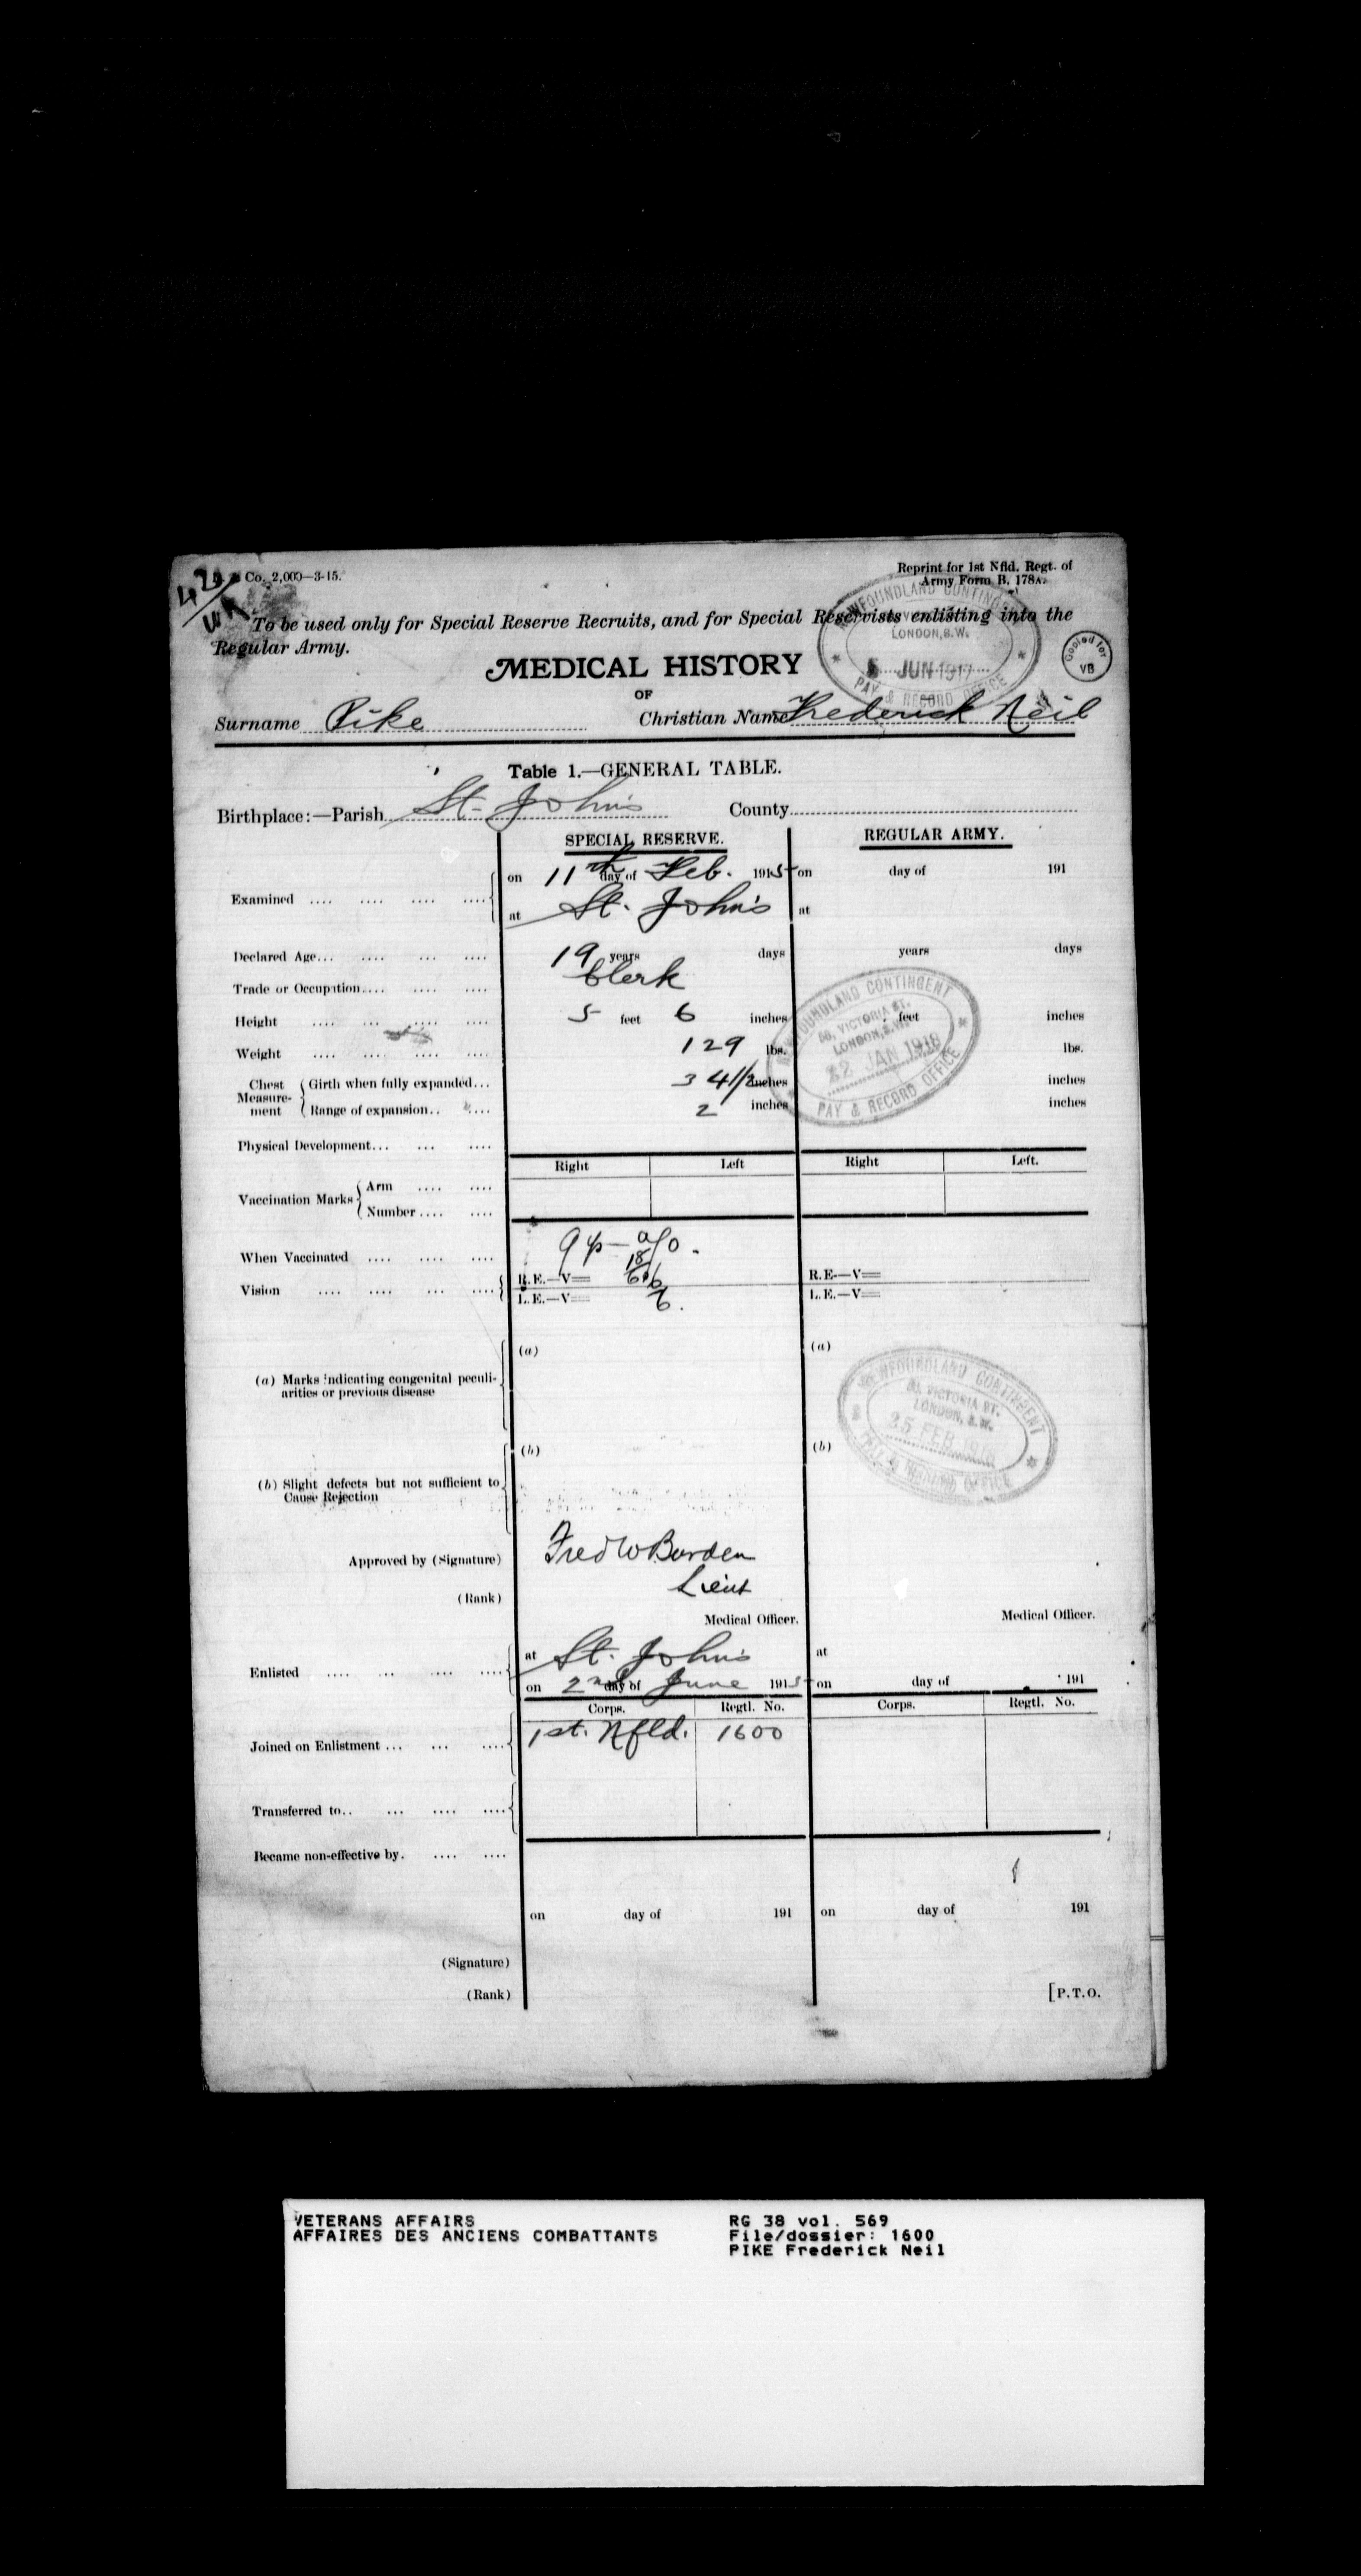 42
Co. 2,000—3-15.
Reprint for 1st Nfld. Regt. of
Army Form B. 178A.
To be used only for Special Reserve Recruits, and for Special Reservists enlisting into the
Regular Army.
NEWFOUNDLAND CONTINGENT
LONDON, S.W.
5 JUN 1917
PAY & RECORD OFFICE
Copied for
VB
MEDICAL HISTORY
OF
Surname Pike Christian Name Frederick Neil
Table 1.—GENERAL TABLE.
Birthplace:—Parish St. John's County
SPECIAL RESERVE. REGULAR ARMY.
Examined on 11th day of Feb. 1915 on day of 191
at St. John's at
Declared Age 19 years days years days
Trade or Occupation Clerk
Height 5 feet 6 inches feet inches
Weight 129 lbs. lbs.
Chest Measurement Girth when fully expanded 34 1/2 inches inches
Range of expansion 2 inches inches
NEWFOUNDLAND CONTINGENT
58, VICTORIA ST.
LONDON, S.W.
22 JAN 1918
PAY & RECORD OFFICE
Physical Development
Right Left Right Left.
Vaccination Marks Arm
Number
When Vaccinated
Vision R.E.—V= R.E.—V=
L.E.—V= 6 L.E.—V=
(a) (a)
(a) Marks indicating congenital peculi-
arities or previous disease
NEWFOUNDLAND CONTINGENT
58, VICTORIA ST.
LONDON, S.W.
25 FEB
PAY & RECORD OFFICE
(b) (b)
(b) Slight defects but not sufficient to
Cause Rejection
Approved by (Signature) Fred W Burden
(Rank) Lieut
Medical Officer. Medical Officer.
Enlisted at St. John's at
on 2nd day of June 1915 on day of 191
Corps. Regtl. No. Corps. Regtl. No.
Joined on Enlistment 1st. Nfld. 1600
Transferred to
Became non-effective by
on day of 191 on day of 191
(Signature)
(Rank)
[P.T.O.
VETERANS AFFAIRS RG 38 vol. 569
AFFAIRES DES ANCIENS COMBATTANTS File/dossier: 1600
PIKE Frederick Neil